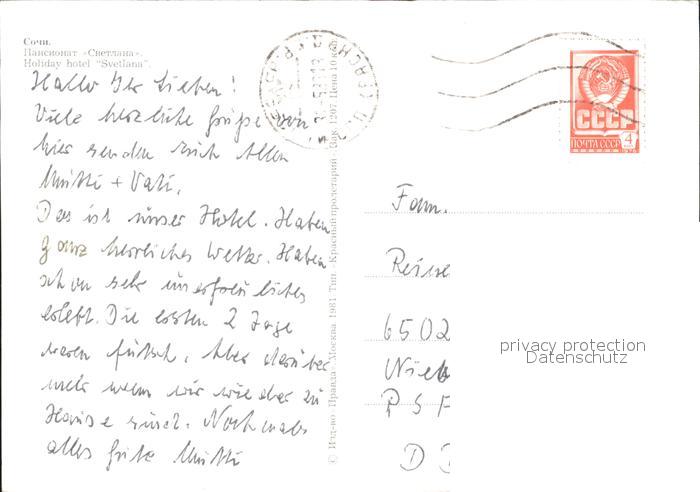 Сочи.
Пансионат «Светлана».
Holiday hotel "Svetlana".
Hallo Ihr Lieben!
Viele herzliche Grüße von
hier senden Euch Allen
Mutti + Vati.
Das ist unser Hotel. Haben
ganz herrliches Wetter. Haben
schon sehr unerfreuliches
erlebt. Die ersten 2 Tage
waren futsch. Aber darüber
mehr wenn wir wieder zu
Hause sind. Nochmals
alles Gute Mutti
© Изд-во «Правда» Москва. 1981 Тип. «Красный пролетарий» Зак. 1207 Цена 10 коп.
СССР
ПОЧТА СССР
4
1976
Fam.
Reise
6502
Nieb
PSF
DD
privacy protection
Datenschutz